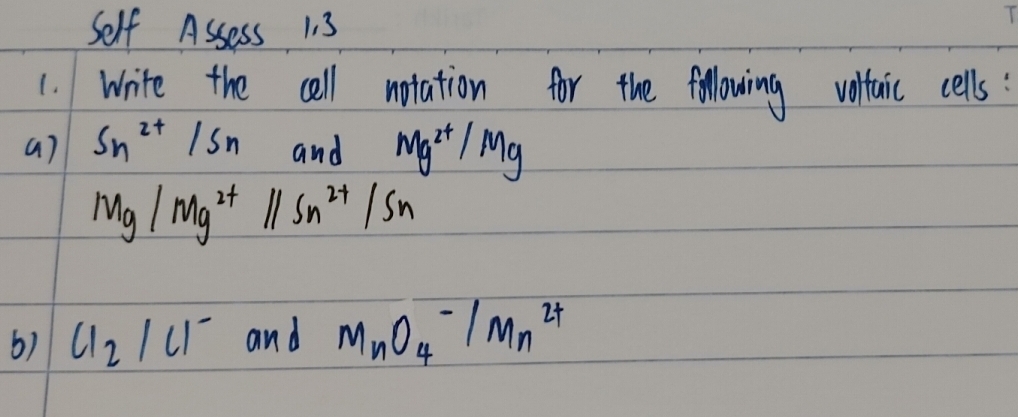 Self Assess 1.3
1. Write the cell notation for the following voltaic cells:
a) Sn²⁺ / Sn and Mg²⁺ / Mg
Mg / Mg²⁺ // Sn²⁺ / Sn
b) Cl₂ / Cl⁻ and MnO₄⁻ / Mn²⁺